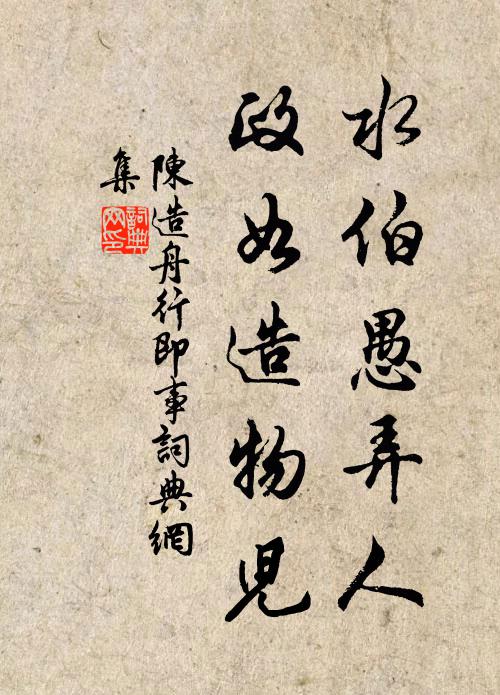 水伯愚弄人
政如造物児
陳造舟行即事詞典網
集
詞典
网印